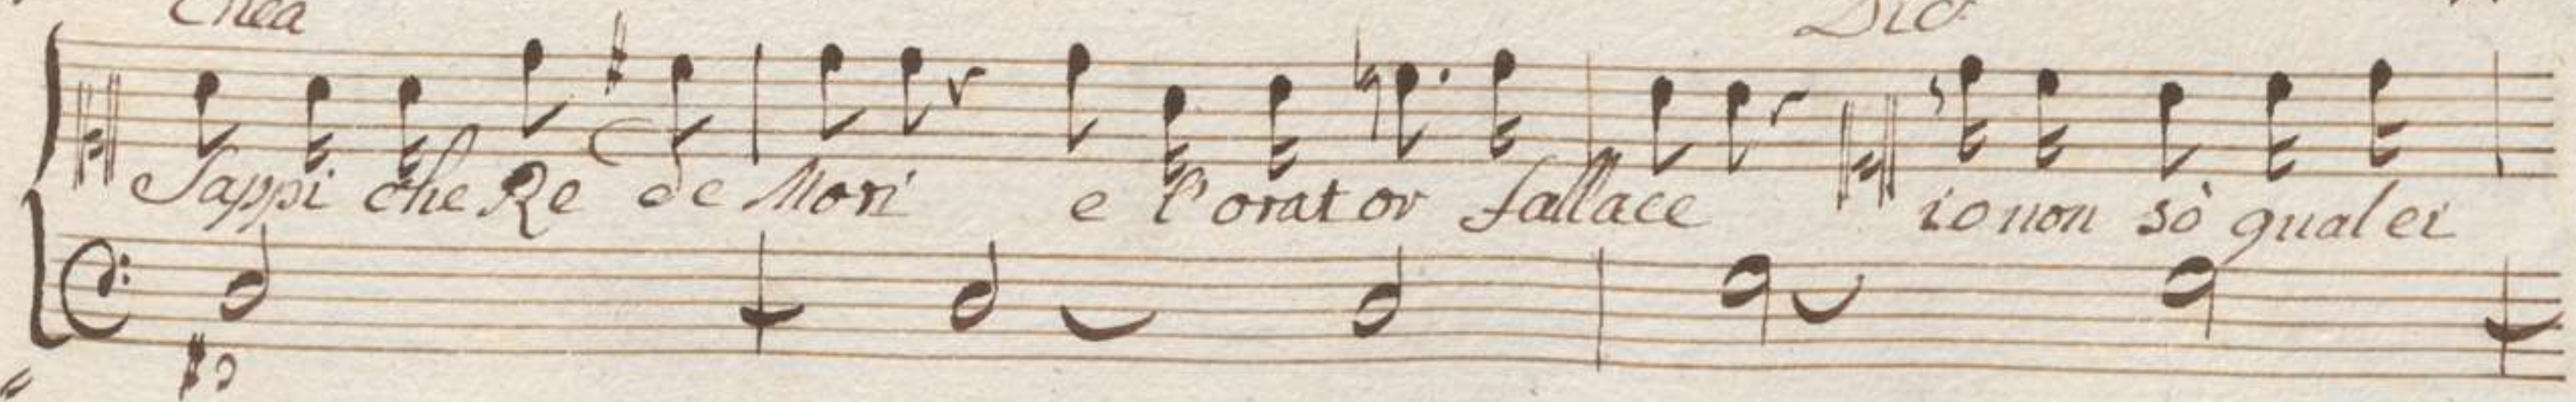 Enea Did
Sappi che Re de Mori e l'orator fallace io non sò qual ei